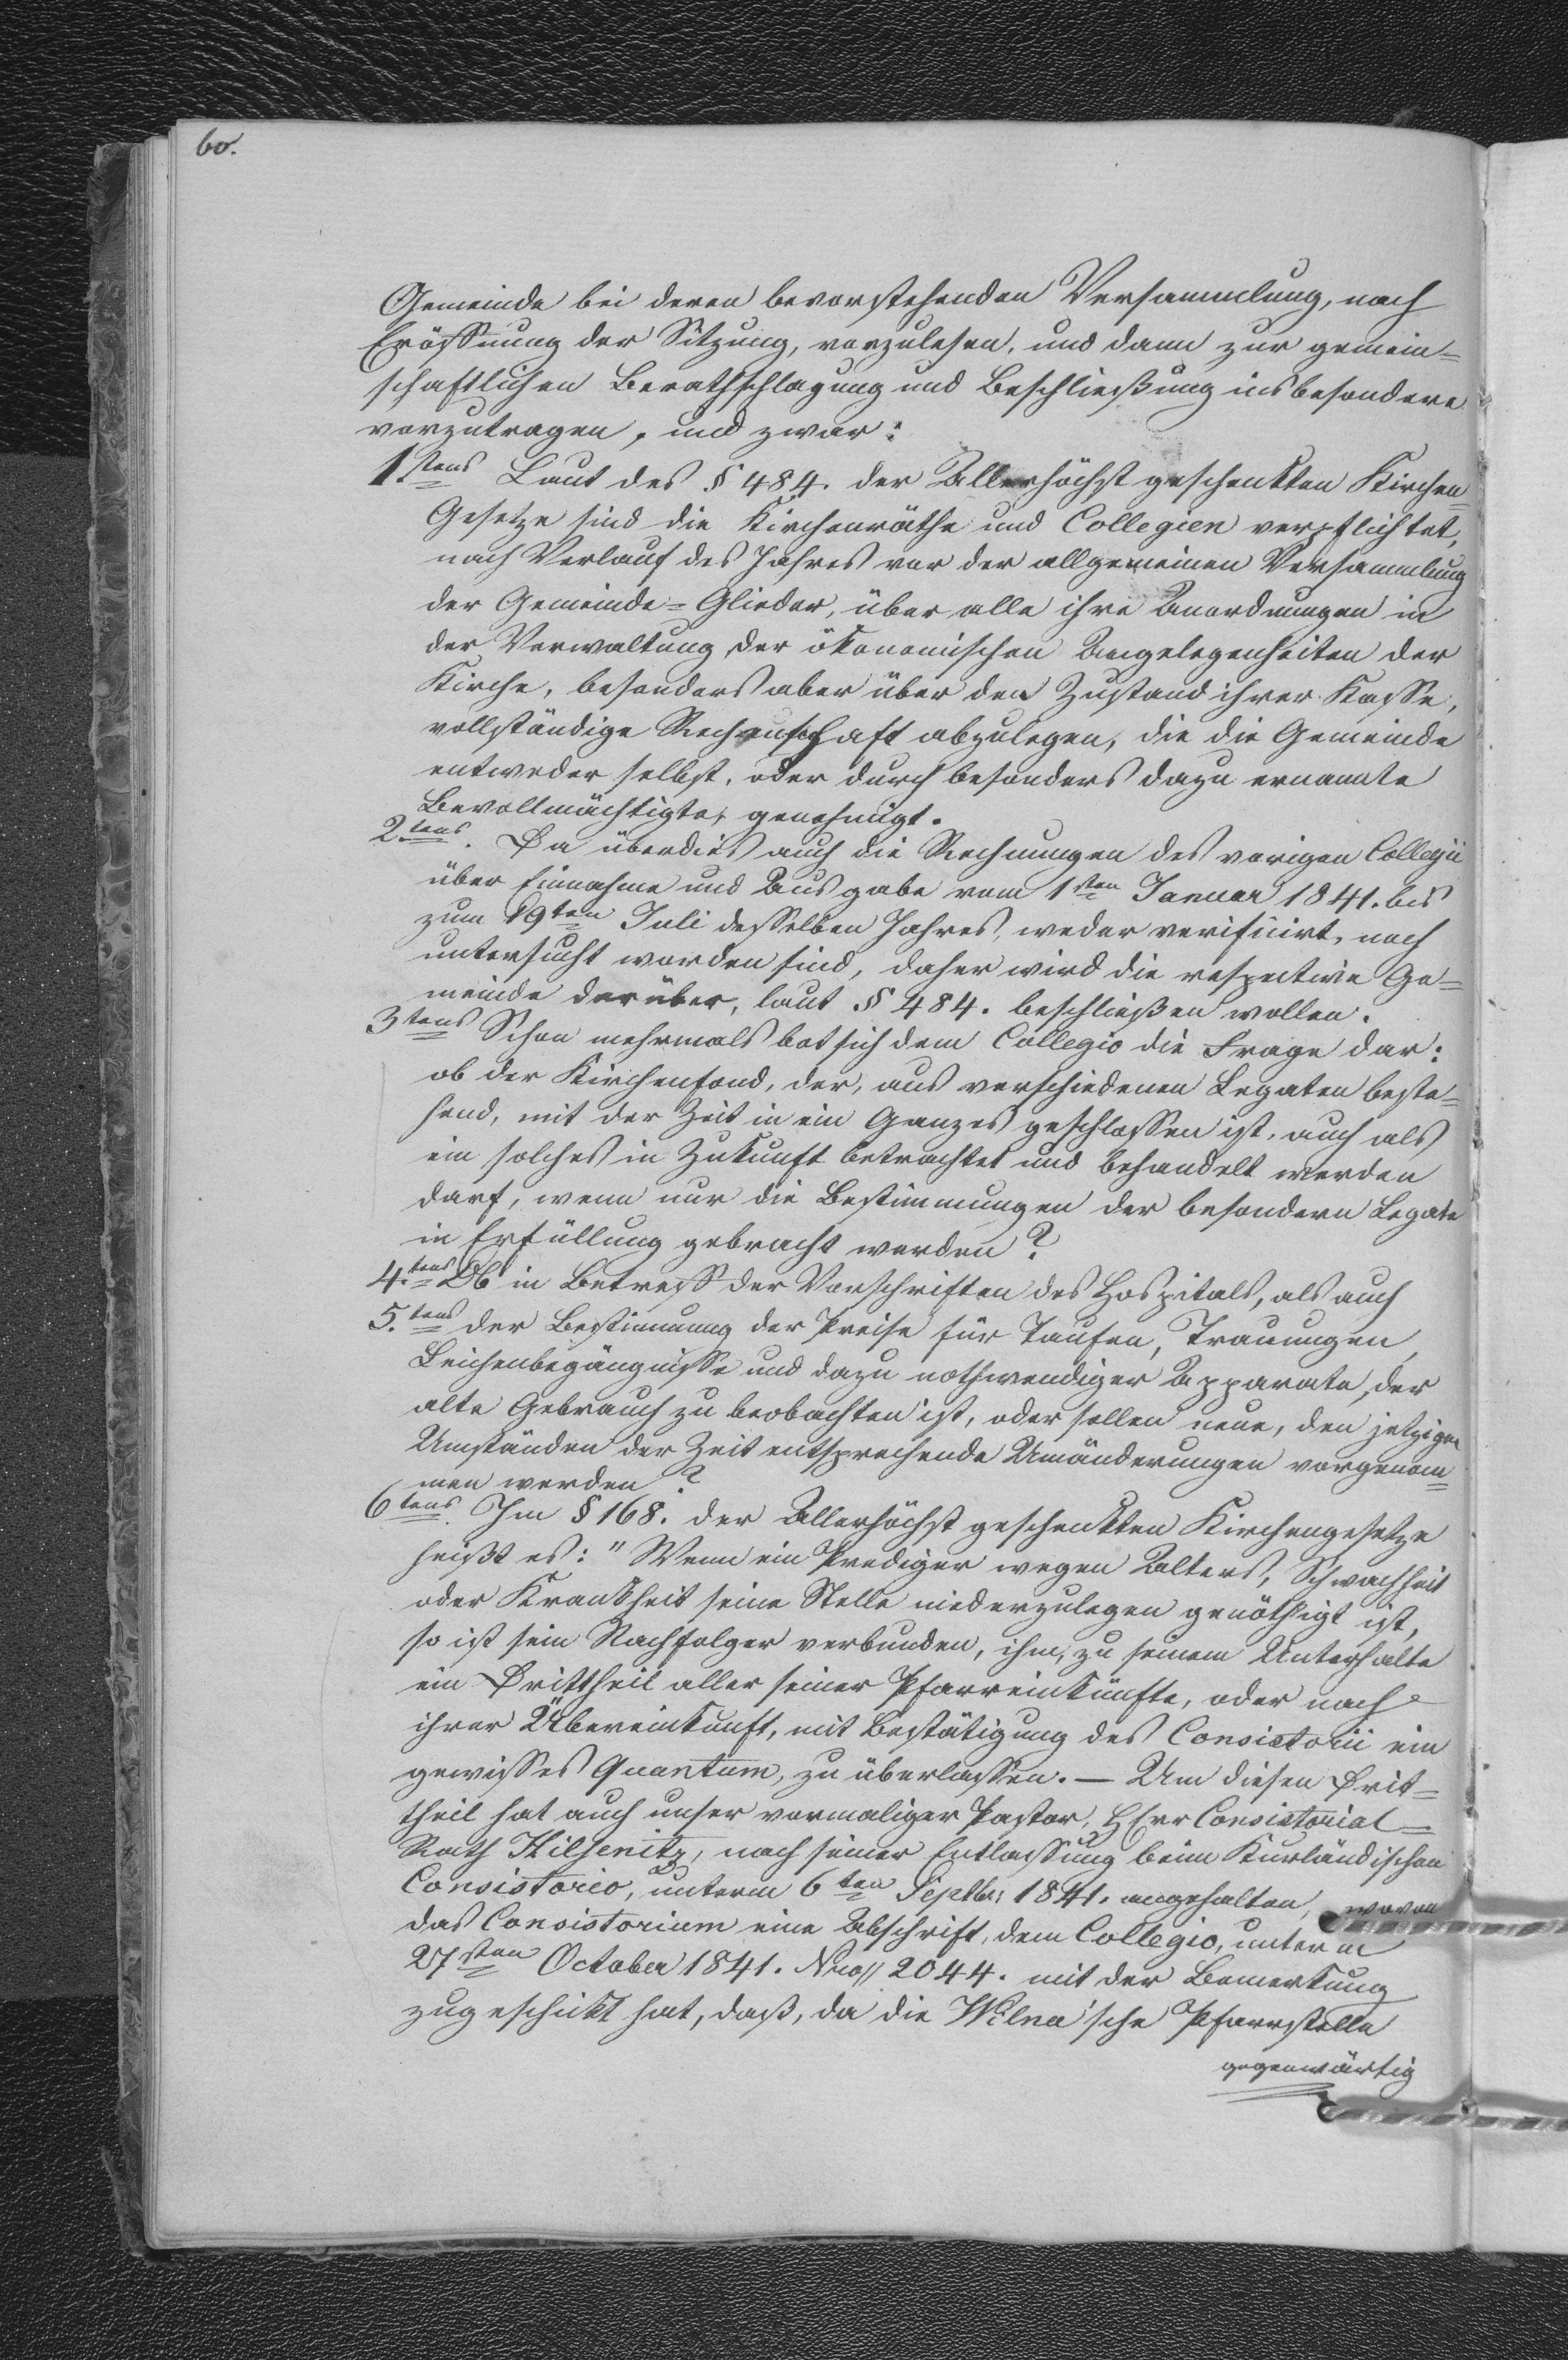 60.
Gemeinde bei deren bevorstehenden Versammlung, nach
Eröffnung der Sitzung, vorzulesen, und dann zur gemein=
schaftlichen Berathschlagung und Beschließung insbesondere
vorzutragen, und zwar:
1stens Laut des § 484. der Allerhöchst geschenkten Kirchen=
Gesetze sind die Kirchenräthe und Collegien verpflichtet,
nach Verlauf des Jahres vor der allgemeinen Versammlung
der Gemeinde=Glieder, über alle ihre Anordnungen in
der Verwaltung der ökonomischen Angelegenheiten der
Kirche, besonders aber über den Zustand ihrer Kasse,
vollständige Rechenschaft abzulegen, die die Gemeinde
entweder selbst, oder durch besonders dazu ernannte
Bevollmächtigte, genehmigt.
2tens. Da überdies auch die Rechnungen des vorigen Collegii
über Einnahme und Ausgabe vom 1sten Januar 1841. bis
zum 19ten Juli desselben Jahres, weder verificirt, noch
untersucht worden sind, daher wird die respective Ge=
meinde darüber, laut § 484. beschließen wollen.
3tens Schon mehrmals bot sich dem Collegio die Frage dar:
ob der Kirchenfond, der, aus verschiedenen Legaten beste=
hend, mit der Zeit in ein Ganzes geschlossen ist, auch als
ein solches in Zukunft betrachtet und behandelt werden
darf, wenn nur die Bestimmungen der besondern Legate
in Erfüllung gebracht werden?
4.tens Ob in Betreff der Vorschriften des Hospitals, als auch
5.tens der Bestimmung der Preise für Taufen, Trauungen,
Leichenbegängnisse und dazu nothwendiger Apparate, der
alte Gebrauch zu beobachten ist, oder sollen neue, den jetzigen
Umständen der Zeit entsprechende Umänderungen vorgenom=
men werden?
6tens. Im § 168. der Allerhöchst geschenkten Kirchengesetze
heißt es: "Wenn ein Prediger wegen Alters, Schwachheit
oder Krankheit seine Stelle niederzulegen genöthigt ist,
so ist sein Nachfolger verbunden, ihm, zu seinem Unterhalte
ein Drittheil aller seiner Pfarreinkünfte, oder nach
ihrer Übereinkunft, mit Bestätigung des Consistorii ein
gewisses Quantum, zu überlassen. — Um diesen Drit=
theil hat auch unser vormaliger Pastor, HErr Consistorial=
Rath Hilsenitz, nach seiner Entlassung beim Kurländischen
Consistorio, unterm 6ten Septbr: 1841. angehalten, wovon
das Consistorium eine Abschrift, dem Collegio, unterm
27sten October 1841. Nro// 2044. mit der Bemerkung
zugeschickt hat, daß, da die Wilna'sche Pfarrstelle
gegenwärtig